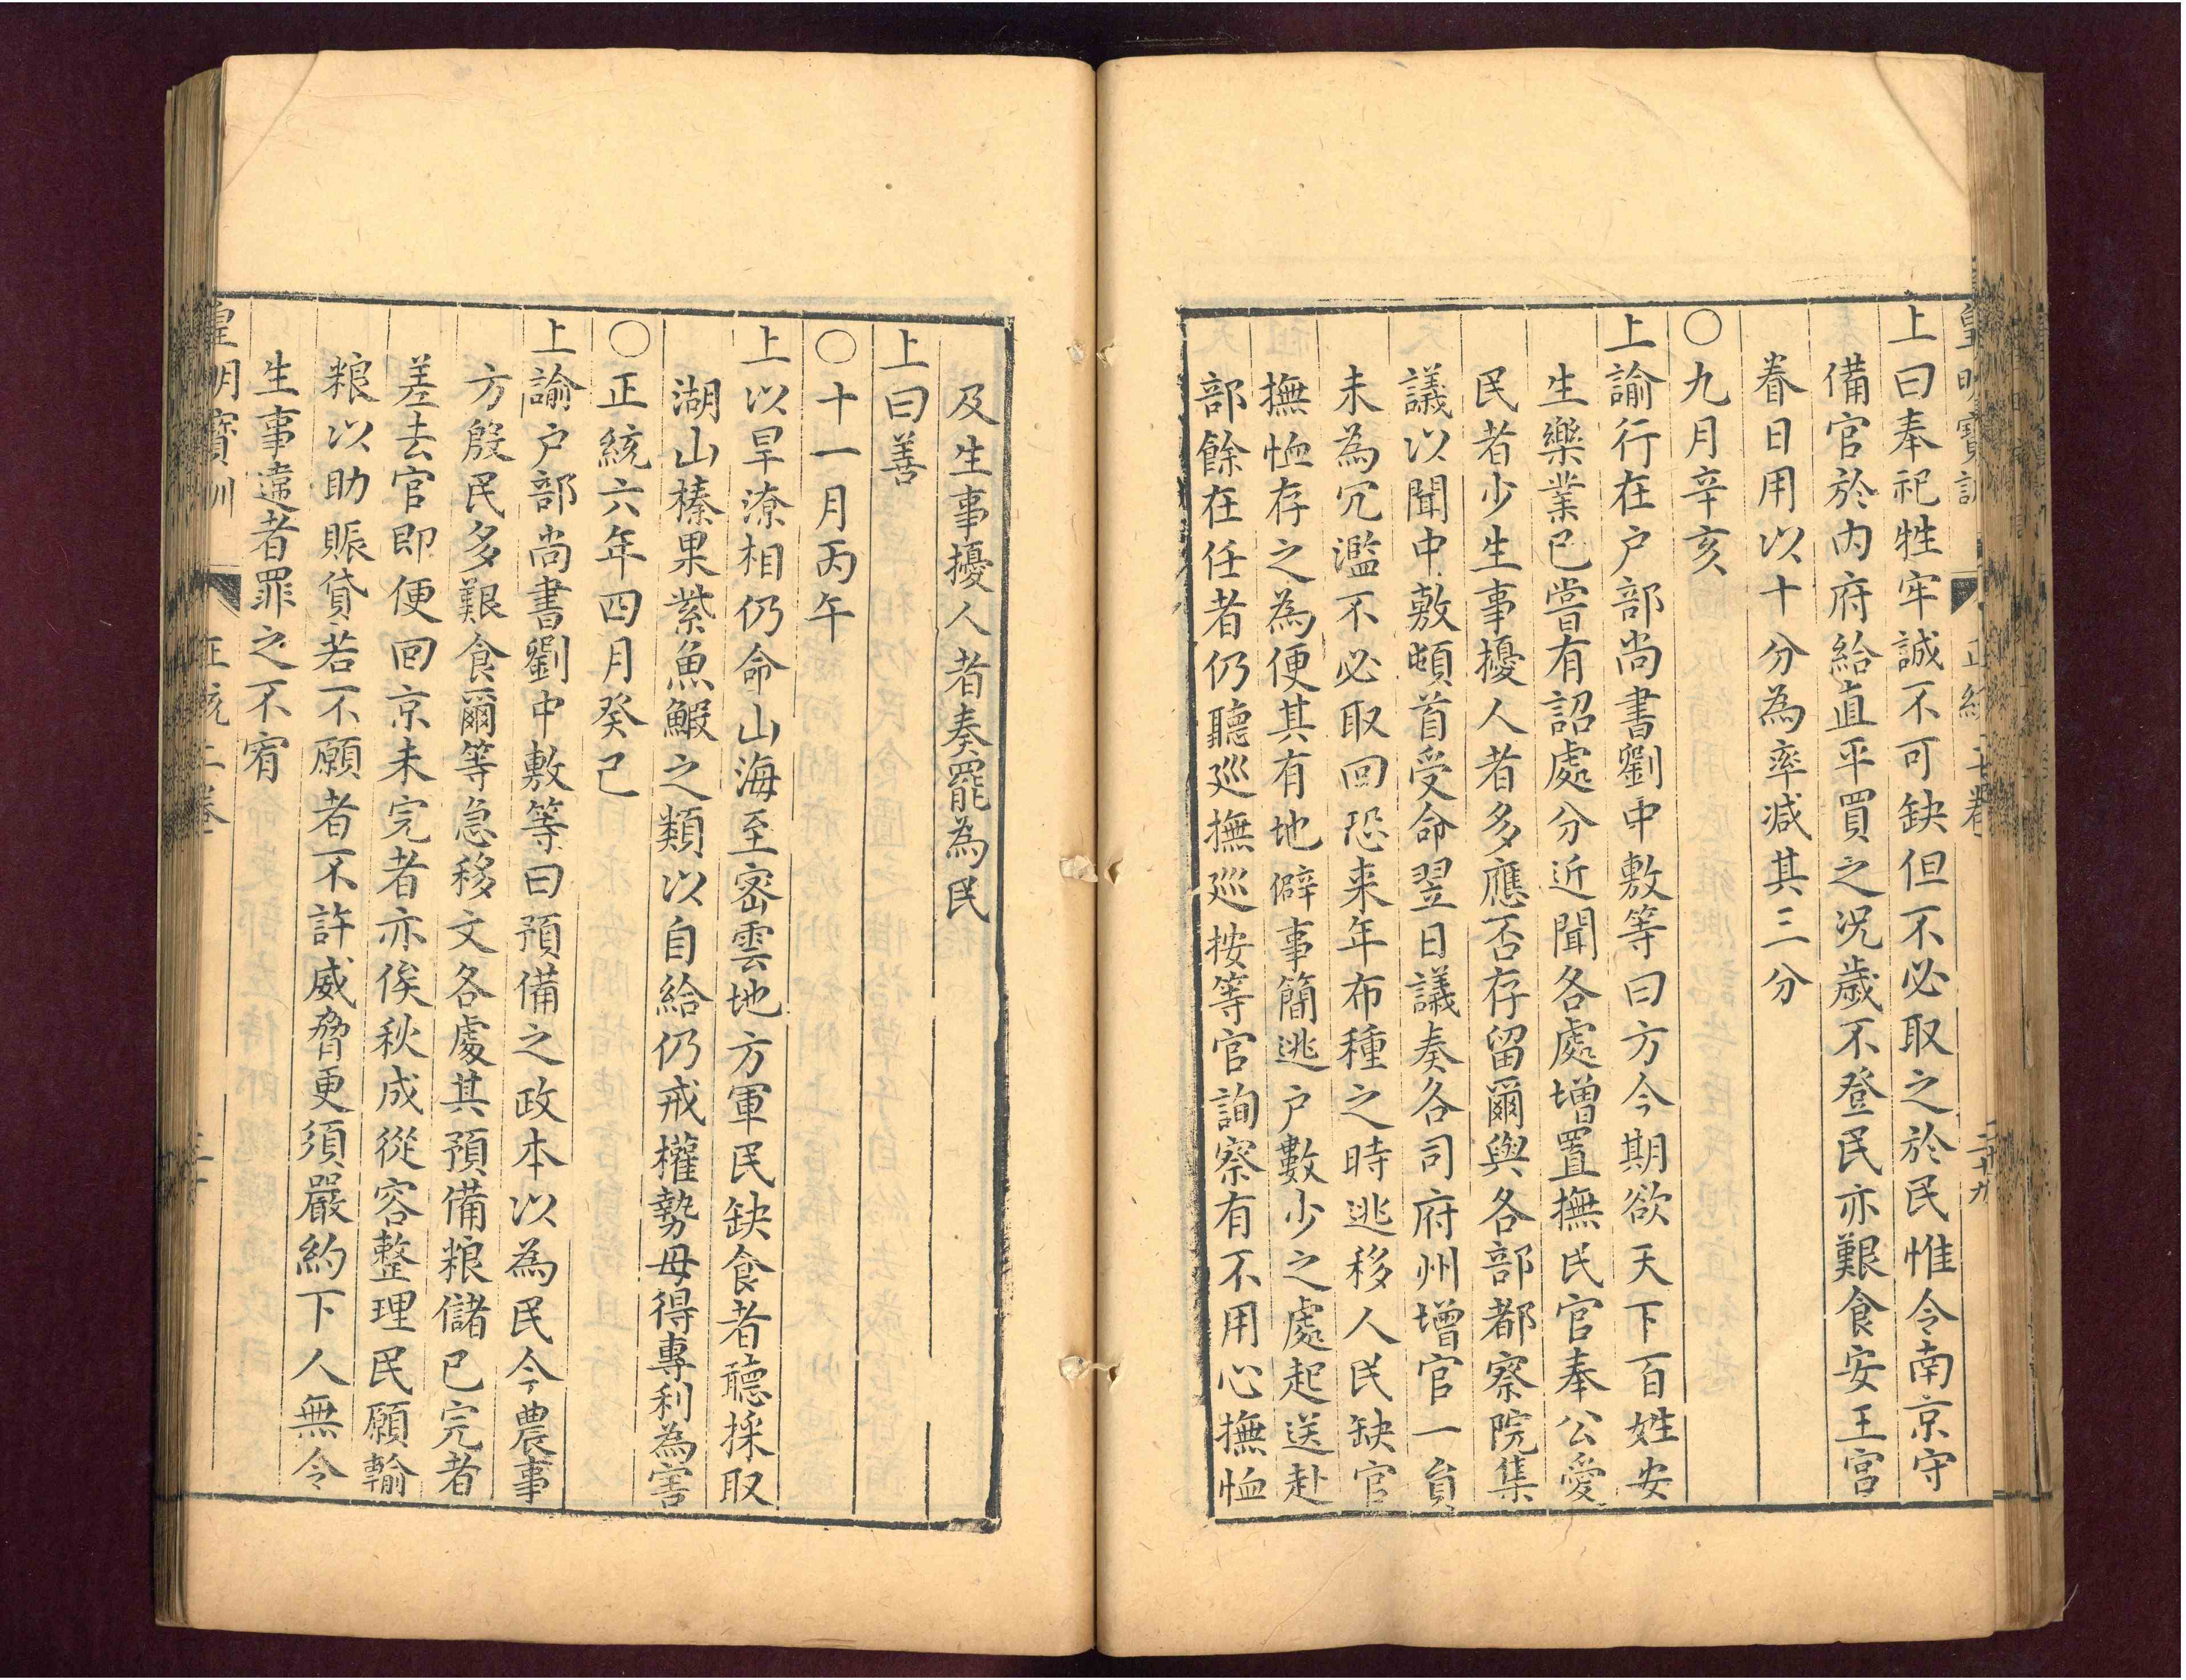 皇明寳訓 正統二卷 二十九
上曰奉祀牲牢誠不可缺但不必取之於民惟令南京守
備官於内府給直平買之况歳不登民亦艱食安王宫
眷日用以十分為率减其三分
〇九月辛亥
上諭行在户部尚書劉中敷等曰方今期欲天下百姓安
生樂業已嘗有詔處分近聞各處增置撫民官奉公愛
民者少生事擾人者多應否存留爾與各部都察院集
議以聞中敷頓首受命翌日議奏各司府州增官一員
未為冗濫不必取回恐来年布種之時逃移人民缺官
撫恤存之為便其有地僻事簡逃户數少之處起送赴
部餘在任者仍聽廵撫廵按等官詢察有不用心撫恤
及生事擾人者奏罷為民
上曰善
〇十一月丙午
上以旱潦相仍命山海至宻雲地方軍民缺食者聽採取
湖山榛果紫魚鰕之類以自給仍戒權勢毋得專利為害
〇正統六年四月癸己
上諭户部尚書劉中敷等曰預備之政本以為民今農事
方殷民多艱食爾等急移文各處其預備粮儲已完者
差去官即便囬京未完者亦俟秋成從容整理民願輸
粮以助賑貸若不願者不許威脅更須嚴約下人無令
生事違者罪之不宥
皇明寳訓 正統二卷 三十